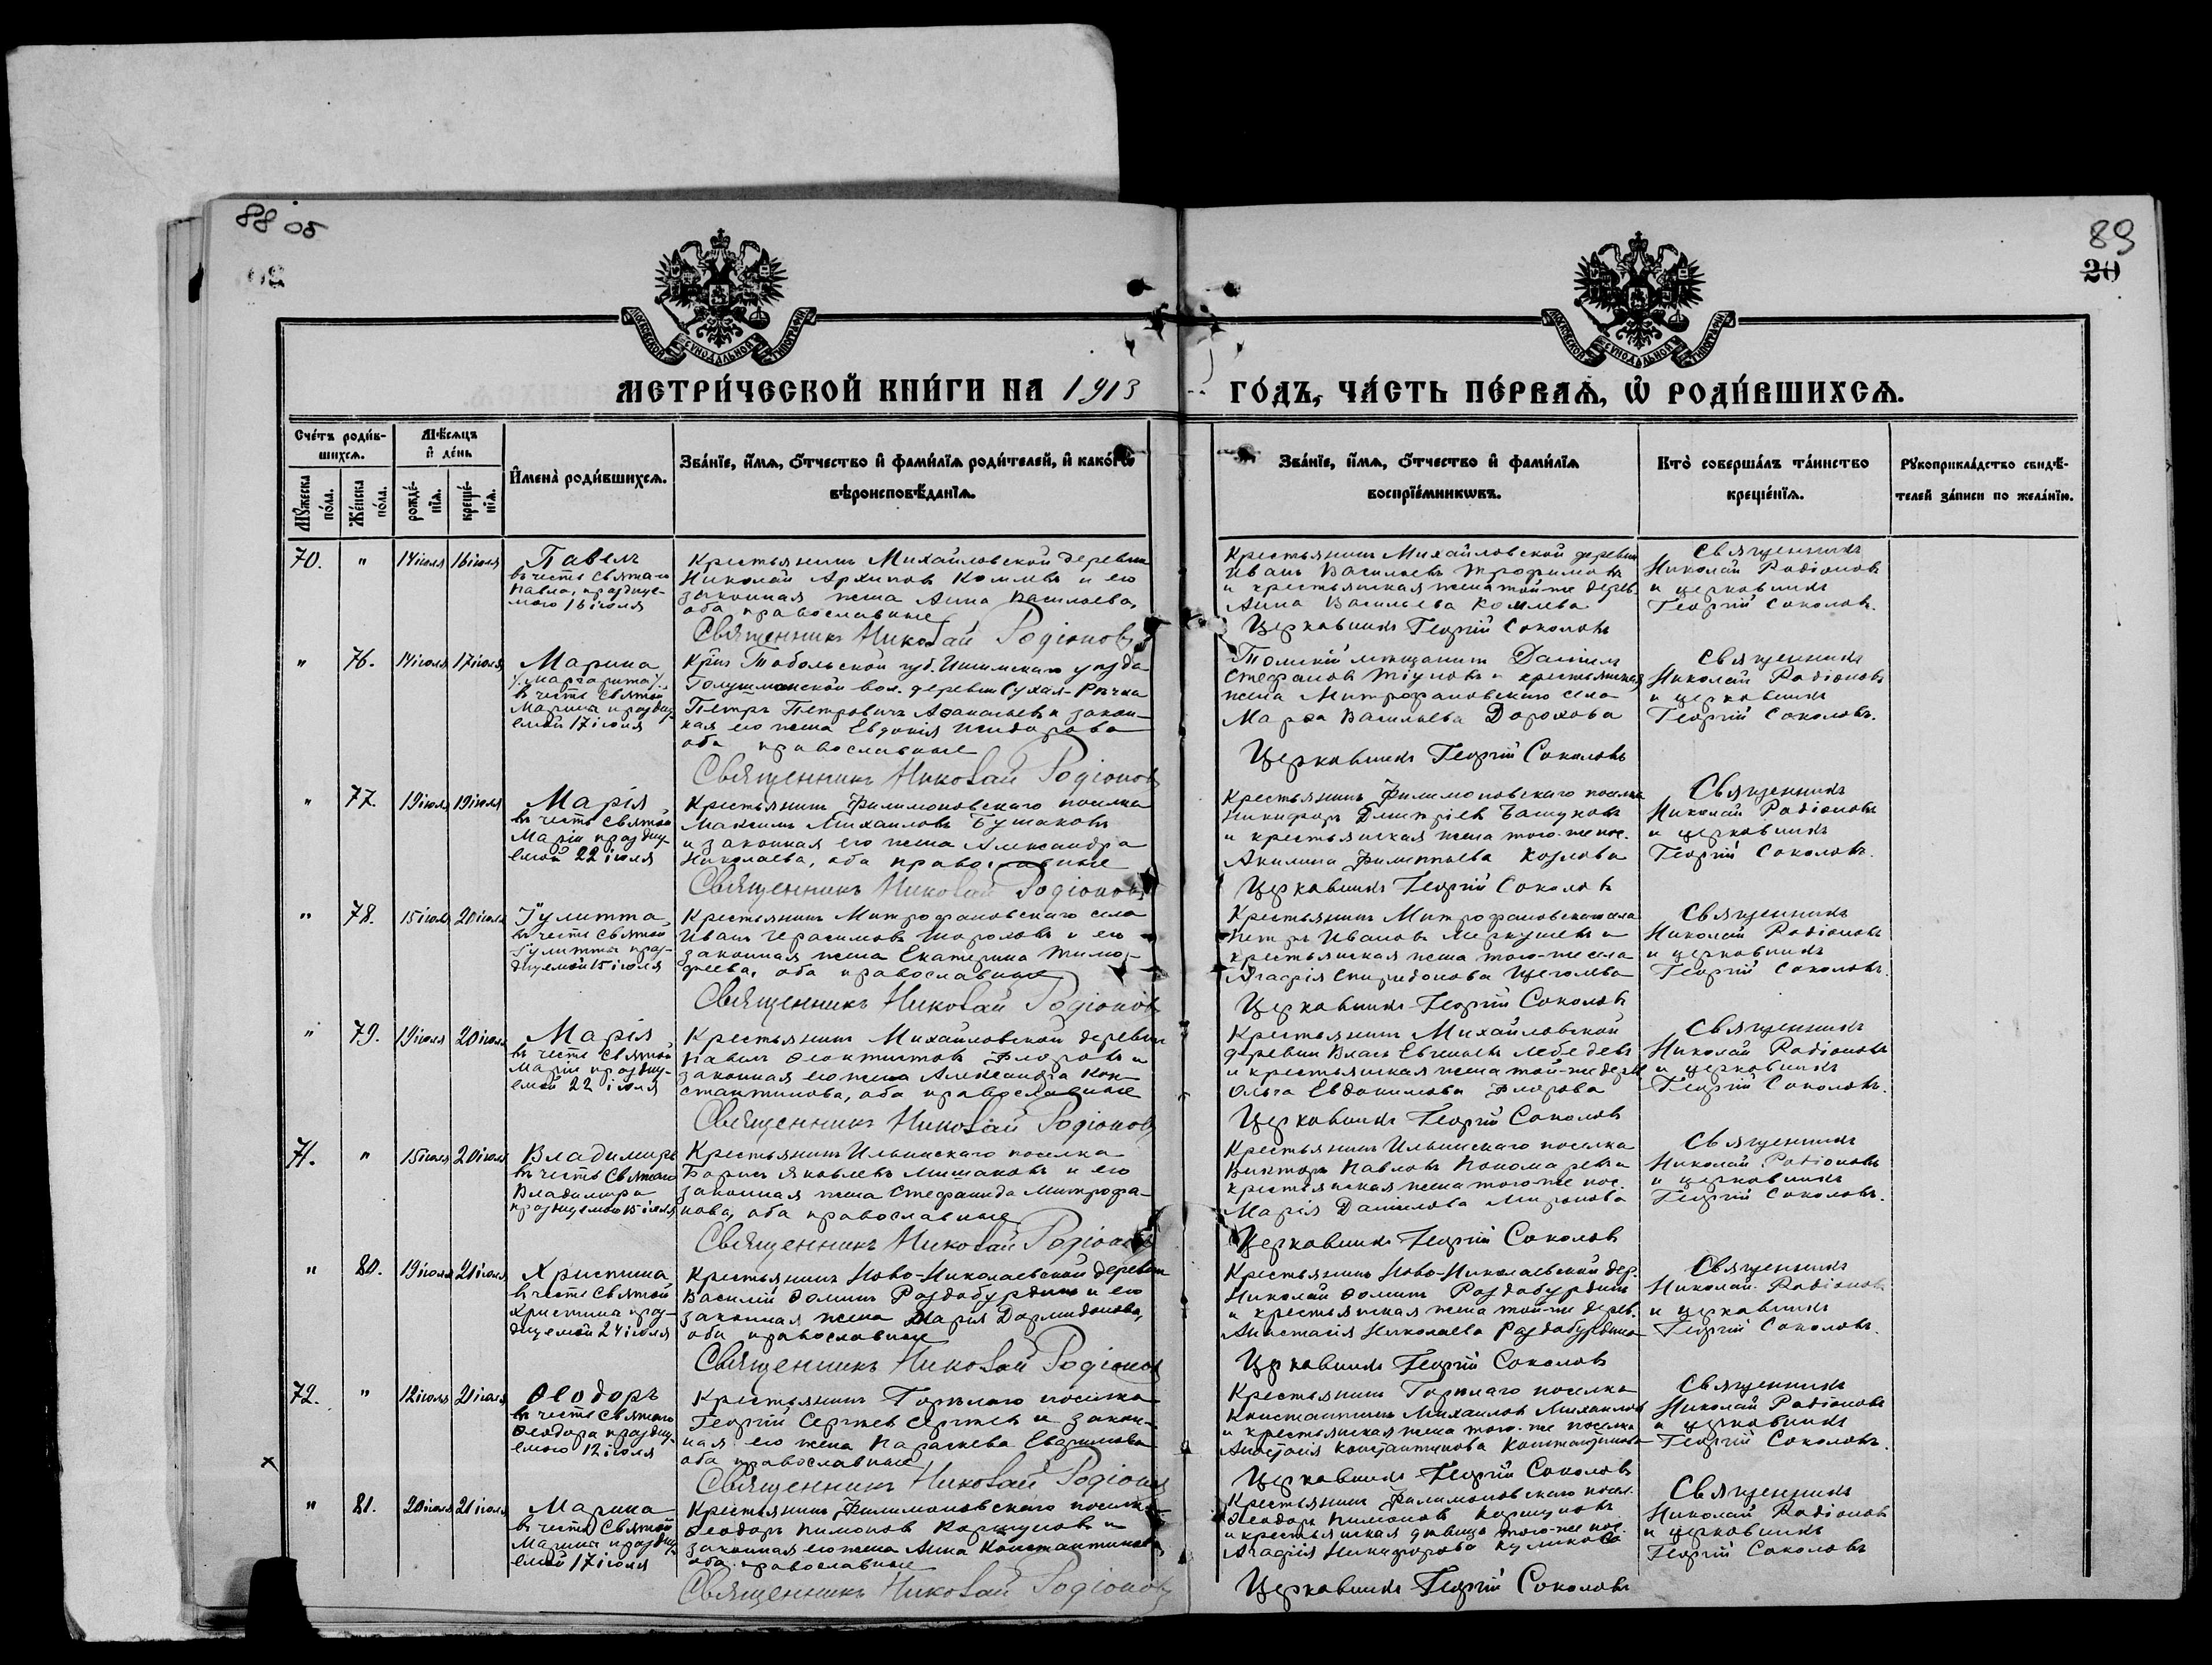 88 об
89
20
МОСКОВСКОЙ СѴНОДАЛЬНОЙ ТИПОГРАФІИ
МОСКОВСКОЙ СѴНОДАЛЬНОЙ ТИПОГРАФІИ
МЕТРИ́ЧЕСКОЙ КНИ́ГИ НА 1913 ГО́ДЪ, ЧА́СТЬ ПЕ́РВАѦ, Ѡ РОДИ́ВШИХСѦ.
Сче́тъ роди́в-
шихсѧ.
Мѣ́сѧцъ
и҆ де́нь
Мꙋ́жеска по́ла.
Же́нска по́ла.
рожде́-нїѧ.
креще́-нїѧ.
И҆мена̀ роди́вшихсѧ.
Зва́нїе, и҆́мѧ, ѻ҆́тчество и҆ фами́лїѧ роди́телей, и҆ како́гѡ
вѣроисповѣ́данїѧ.
Зва́нїе, и҆́мѧ, ѻ҆́тчество и҆ фами́лїѧ
воспрїе́мникѡвъ.
Кто̀ соверша́лъ та́инство
креще́нїѧ.
Рꙋкоприкла́дство свидѣ́-
телей за́писи по жела́нїю.
70. " 14 іюля 16 іюля
Павелъ
въ честь Святаго
Павла, празднуе-
маго 16 іюля
Крестьянинъ Михайловской деревни
Николай Архипов Комлевъ и его
законная жена Анна Васильева,
оба православные
Священникъ Николай Родіоновъ
Крестьянинъ Михайловской деревни
Иванъ Васильевъ Трофимовъ
и крестьянская жена той-же дерев.
Анна Васильева Комлева
Церковникъ Георгій Соколовъ
Священникъ
Николай Родіоновъ
и церковникъ
Георгій Соколовъ.
" 76. 14 іюля 17 іюля
Марина
/Маргарита/
въ честь Святой
Марины празднуе-
мой 17 іюля
Кр-нъ Тобольской губ. Ишимскаго уезда
Голушманской вол. деревни Сухая-Речка
Петръ Петровичъ Аѳанасьевъ и закон-
ная его жена Евдокія Исидорова
оба православные
Священникъ Николай Родіоновъ
Томскій мещанинъ Даніилъ
Стефановъ Тіуновъ и крестьянская
жена Митрофановскаго села
Марѳа Васильева Дорохова
Церковникъ Георгій Соколовъ
Священникъ
Николай Родіоновъ
и церковникъ
Георгій Соколовъ.
" 77. 19 іюля 19 іюля
Марія
въ честь Святой
Маріи праздну-
емой 22 іюля
Крестьянинъ Филимоновскаго поселка
Максимъ Михаиловъ Бушаковъ
и законная его жена Александра
Николаева, оба православные
Священникъ Николай Родіоновъ
Крестьянинъ Филимоновскаго поселка
Никифоръ Дмитріевъ Башуновъ
и крестьянская жена того-же пос.
Акилина Филиппьева Козлова
Церковникъ Георгій Соколовъ
Священникъ
Николай Родіоновъ
и церковникъ
Георгій Соколовъ.
" 78. 15 іюля 20 іюля
Іулитта,
въ честь Святой
Іулитты праз-
днуемой 15 іюля
Крестьянинъ Митрофановскаго села
Иванъ Герасимовъ Шороховъ и его
законная жена Екатерина Тимо-
феева, оба православные
Священникъ Николай Родіоновъ
Крестьянинъ Митрофановскаго села
Петръ Ивановъ Меркушевъ и
крестьянская жена того-же села
Агафія Спиридонова Щеголева
Церковникъ Георгій Соколовъ
Священникъ
Николай Родіоновъ
и церковникъ
Георгій Соколовъ.
" 79. 19 іюля 20 іюля
Марія
въ честь Святой
Маріи праздну-
емой 22 іюля
Крестьянинъ Михайловской деревни
Павелъ Ѳеоктистовъ Флоровъ и
законная его жена Александра Кон-
стантинова, оба православные
Священникъ Николай Родіоновъ
Крестьянинъ Михайловской
деревни Власъ Евгеньевъ Лебедевъ
и крестьянская жена той-же дерев
Ольга Евдокимова Флорова
Церковникъ Георгій Соколовъ
Священникъ
Николай Родіоновъ
и церковникъ
Георгій Соколовъ.
71. " 15 іюля 20 іюля
Владимиръ
въ честь Святаго
Владимира
празднуемаго 15 іюля
Крестьянинъ Ильинскаго поселка
Борисъ Яковлевъ Лишаковъ и его
законная жена Стефанида Митрофа-
нова, оба православные
Священникъ Николай Родіоновъ
Крестьянинъ Ильинскаго поселка
Викторъ Павловъ Пономаревъ и
крестьянская жена того-же пос.
Марія Даниилова Миронова
Церковникъ Георгій Соколовъ
Священникъ
Николай Родіоновъ
и церковникъ
Георгій Соколовъ.
" 80. 19 іюля 21 іюля
Христина,
въ честь Святой
Христины праз-
днуемой 24 іюля
Крестьянинъ Ново-Николаевской деревни
Василій Ѳоминъ Раздобурдинъ и его
законная жена Марія Дормидонова,
оба православные
Священникъ Николай Родіоновъ
Крестьянинъ Ново-Николаевской дер.
Николай Ѳоминъ Раздобурдинъ
и крестьянская жена той-же дерев.
Анастасія Николаева Раздобурдина
Церковникъ Георгій Соколовъ
Священникъ
Николай Родіоновъ
и церковникъ
Георгій Соколовъ.
72. " 12 іюля 21 іюля
Ѳеодоръ
въ честь Святаго
Ѳеодора праздну-
емаго 12 іюля
Крестьянинъ Горелаго поселка
Георгій Сергеевъ Сергеевъ и закон-
ная его жена Параскева Евфимова
оба православные
Священникъ Николай Родіоновъ
Крестьянинъ Горелаго поселка
Константинъ Михаиловъ Михаиловъ
и крестьянская жена того-же поселка
Анастасія Константинова Константинова
Церковникъ Георгій Соколовъ
Священникъ
Николай Родіоновъ
и церковникъ
Георгій Соколовъ.
х
" 81. 20 іюля 21 іюля
Марина
въ честь Святой
Марины праздну-
емой 17 іюля
Крестьянинъ Филимоновскаго поселка
Ѳеодоръ Пимоновъ Коршуновъ и
законная его жена Анна Константинова,
оба православные
Священникъ Николай Родіоновъ
Крестьянинъ Филимоновскаго посел.
Ѳеодоръ Пимоновъ Коршуновъ
и крестьянская девица того-же пос.
Агафія Никифорова Куликова
Церковникъ Георгій Соколовъ
Священникъ
Николай Родіоновъ
и церковникъ
Георгій Соколовъ